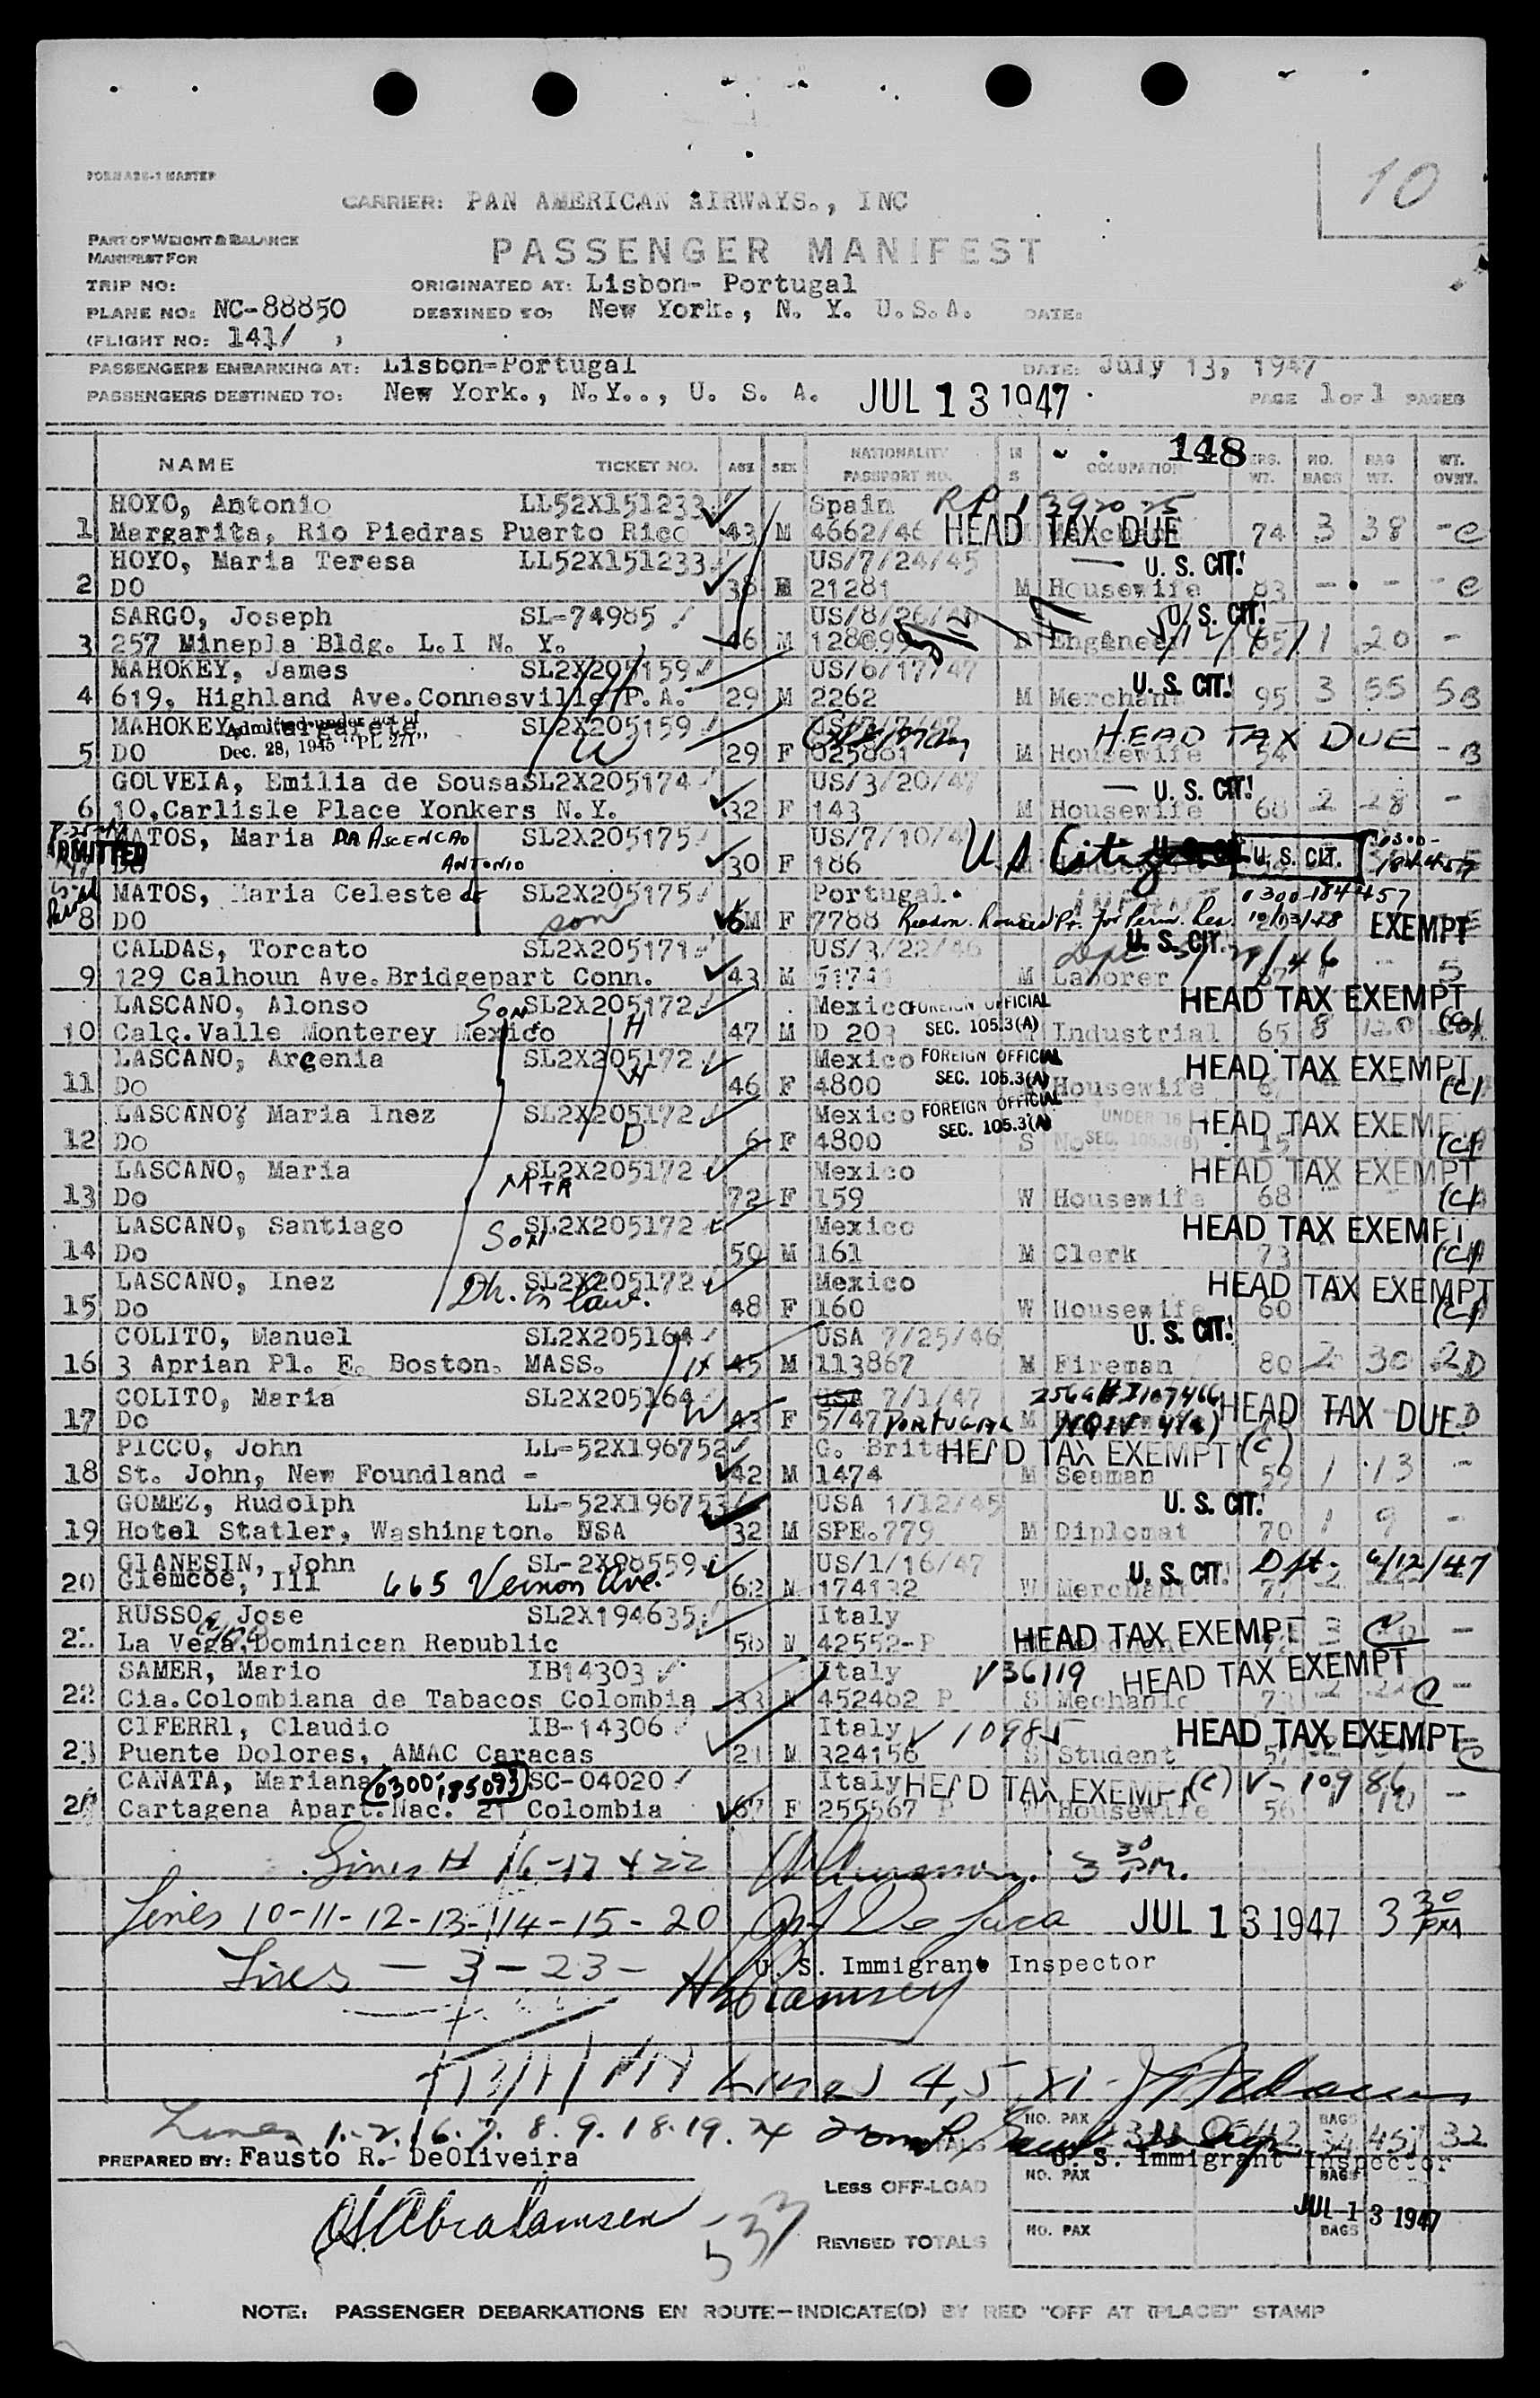 10
FORM ABS-1 MASTER
CARRIER: PAN AMERICAN AIRWAYS., INC
PART OF WEIGHT & BALANCE
MANIFEST FOR
PASSENGER MANIFEST
TRIP NO:
ORIGINATED AT: Lisbon- Portugal
PLANE NO: NC-88850
DESTINED TO: New York., N. Y. U.S.A. DATE:
(FLIGHT NO: 141/ )
PASSENGERS EMBARKING AT: Lisbon=Portugal DATE: July 13, 1947
PASSENGERS DESTINED TO: New York., N.Y.., U. S. A. JUL 13 1947 PAGE 1 OF 1 PAGES
148
NAME TICKET NO. AGE SEX NATIONALITY PASSPORT NO. OCCUPATION WT. NO. BAGS BAG WT. WT. OVNT.
HOYO, Antonio LL52X151233 Spain
1 Margarita, Rio Piedras Puerto Rico 43 M 4662/46 HEAD TAX DUE 74 3 38 - C
HOYO, Maria Teresa LL52X151233 US/7/24/45 U. S. CIT.
2 DO 38 21281 M Housewife 83 - - - C
SARGO, Joseph SL-74985 US/8/26/ U. S. CIT.
3 257 Minepla Bldg. L.I N. Y. 46 M Engineer 65 1 20 -
MAHOKEY, James SL2X205159 US/6/17/47 U. S. CIT.
4 619, Highland Ave.Connesville P.A. 29 M 2262 M Merchant 95 3 55 5B
MAHOKEY, Admitted under act of SL2X205159 HEAD TAX DUE
5 DO Dec. 28, 1945 "PL 271" W 29 F 025861 M Housewife 54 - B
GOUVEIA, Emilia de Sousa SL2X205174 US/3/20/47 U. S. CIT.
6 10,Carlisle Place Yonkers N.Y. 32 F 143 M Housewife 68 2 28 -
MATOS, Maria DA ASCENCAO SL2X205175 US/7/10/4 US Citizen U. S. CIT. 0300-
ADMITTED DO ANTONIO 30 F 186 184457
MATOS, Maria Celeste de SL2X205175 Portugal. 0300-184457
8 DO son 6 M F 7788 10/03/48 EXEMPT
CALDAS, Torcato SL2X205171 US/3/22/46 U. S. CIT.
9 129 Calhoun Ave.Bridgepart Conn. 43 M 51741 M Laborer
LASCANO, Alonso Son SL2X205172 Mexico FOREIGN OFFICIAL HEAD TAX EXEMPT
10 Calç.Valle Monterey Mexico H 47 M D 203 SEC. 105.3(A) Industrial 65 8 120
LASCANO, Arcenia SL2X205172 Mexico FOREIGN OFFICIAL HEAD TAX EXEMPT
11 Do W 46 F 4800 SEC. 105.3(A) Housewife (C)
LASCANO, Maria Inez SL2X205172 Mexico FOREIGN OFFICIAL UNDER 16 HEAD TAX EXEMPT
12 Do D 6 F 4800 SEC. 105.3(A) S No SEC. 105.3(B) 15 (C)
LASCANO, Maria SL2X205172 Mexico HEAD TAX EXEMPT
13 Do MTR 72 F 159 W Housewife 68 (C)
LASCANO, Santiago SL2X205172 Mexico HEAD TAX EXEMPT
14 Do Son 50 M 161 M Clerk 73 (C)
LASCANO, Inez SL2X205172 Mexico HEAD TAX EXEMPT
15 Do Dh. in law. 48 F 160 W Housewife 60 (C)
COLITO, Manuel SL2X205164 USA 7/25/46 U. S. CIT.
16 3 Aprian Pl. E. Boston. MASS. H 45 M 113867 M Fireman 80 2 30 2D
COLITO, Maria SL2X205164 USA 7/1/47 HEAD TAX DUE
17 Do W 43 F 5/47 PORTUGAL M D
PICCO, John LL-52X196752 G. Brita HEAD TAX EXEMPT (C)
18 St. John, New Foundland - 42 M 1474 M Seaman 59 1 13 -
GOMEZ, Rudolph LL-52X196753 USA 1/12/45 U. S. CIT.
19 Hotel Statler, Washington. NSA 32 M SPE.779 M Diplomat 70 1 9 -
GIANESIN, John SL-2X98559 US/1/16/47 U. S. CIT. Dpt. 6/12/47
20 Glemcoe, Ill 665 Vernon Ave. 62 M 174132 W Merchant
RUSSO, Jose SL2X194635 Italy HEAD TAX EXEMPT
21 La Vega,Dominican Republic 56 M 42552-P
SAMER, Mario IB14303 Italy V36119 HEAD TAX EXEMPT
22 Cia.Colombiana de Tabacos Colombia 33 M 452462 P S Mechanic 73 C -
CIFERRI, Claudio IB-14306 Italy V 10985 HEAD TAX EXEMPT
23 Puente Dolores, AMAC Caracas 21 M 324156 S Student C
CANATA, Mariana 0300-185093 SC-04020 Italy HEAD TAX EXEMPT (C) V-10986
24 Cartagena Apart.Nac. 21 Colombia 67 F 255567 P Housewife 56 1 10 -
Lines 16-17 + 22 3 30 P.M.
Lines 10-11-12-13-14-15-20 JUL 13 1947 3 30 PM
Lines - 3 - 23 - U. S. Immigrant Inspector
Lines 4, 5
Lines 1.-2.-6.7. 8.9.18.19.24 TOTALS NO. PAX BAGS 34 457 32
PREPARED BY: Fausto R.- DeOliveira U. S. Immigrant Inspector
LESS OFF-LOAD NO. PAX BAGS
JUL 13 1947
REVISED TOTALS NO. PAX BAGS
NOTE: PASSENGER DEBARKATIONS EN ROUTE—INDICATE(D) BY RED "OFF AT (PLACE)" STAMP